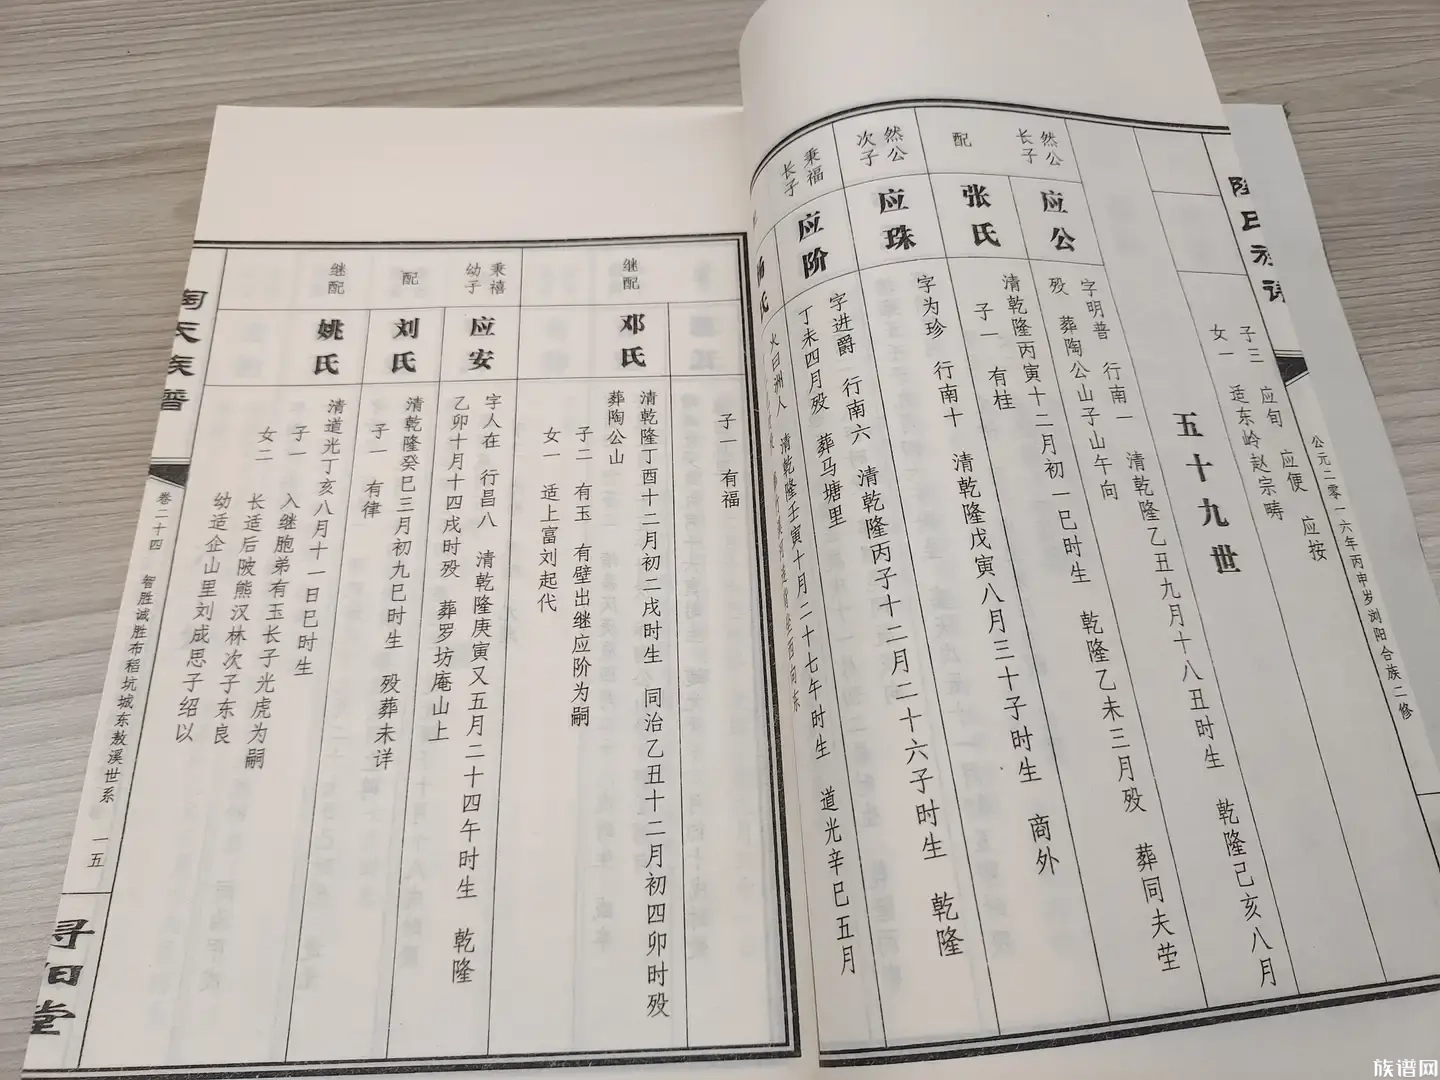 陶氏族谱
公元二零一六年丙申岁浏阳合族二修
子三 应旬 应便 应按
女一 适东岭赵宗畴
五十九世
然公
长子
应公
字明普 行南一 清乾隆乙丑九月十八丑时生 乾隆己亥八月
殁 葬陶公山子山午向
配
张氏
清乾隆丙寅十二月初一巳时生 乾隆乙未三月殁 葬同夫茔
子一 有桂
然公
次子
应珠
字为珍 行南十 清乾隆戊寅八月三十子时生 商外
秉福
长子
应阶
字进爵 行南六 清乾隆丙子十二月二十六子时生 乾隆
丁未四月殁 葬马塘里
氏
火曰洲人 清乾隆壬寅十月二十七午时生 道光辛巳五月
子一 有福
继配
邓氏
清乾隆丁酉十二月初二戌时生 同治乙丑十二月初四卯时殁
葬陶公山
子二 有玉 有壁出继应阶为嗣
女一 适上富刘起代
秉禧
幼子
应安
字人在 行昌八 清乾隆庚寅又五月二十四午时生 乾隆
乙卯十月十四戌时殁 葬罗坊庵山上
配
刘氏
清乾隆癸巳三月初九巳时生 殁葬未详
子一 有律
继配
姚氏
清道光丁亥八月十一日巳时生
子一 入继胞弟有玉长子光虎为嗣
女二 长适后陂熊汉林次子东良
幼适企山里刘成思子绍以
陶氏族谱
卷二十四 智胜诚胜布稻坑城东敖溪世系 一五
寻阳堂
族谱网